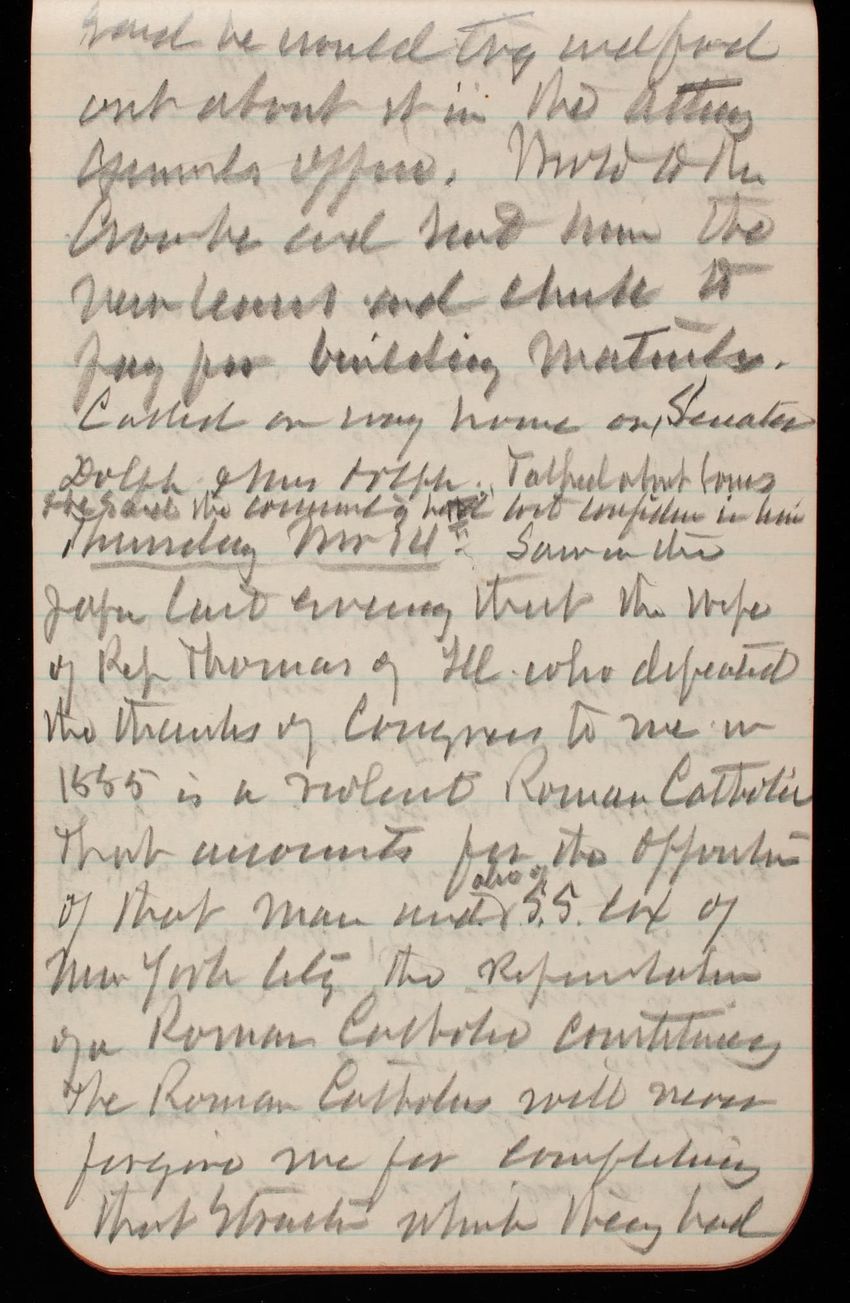 said he would try and find
out about it in the Attorney
Generals office. Wrote to
and sent him the
and check to
pay for building materials.
Called on way home on Senator
Dolph & Mrs Dolph. Talked about
the said the community have lost confidence in him
Thursday Nov 21st. Saw in the
paper last evening that the wife
of Rep Thomas of Ill. who defeated
the thanks of Congress to me in
1885 is a violent Roman Catholic
That accounts for the opposition
of that man and also of S.S. Cox of
New York City the Representative
of a Roman Catholic constituency
The Roman Catholics will never
forgive me for completing
that structure which they had